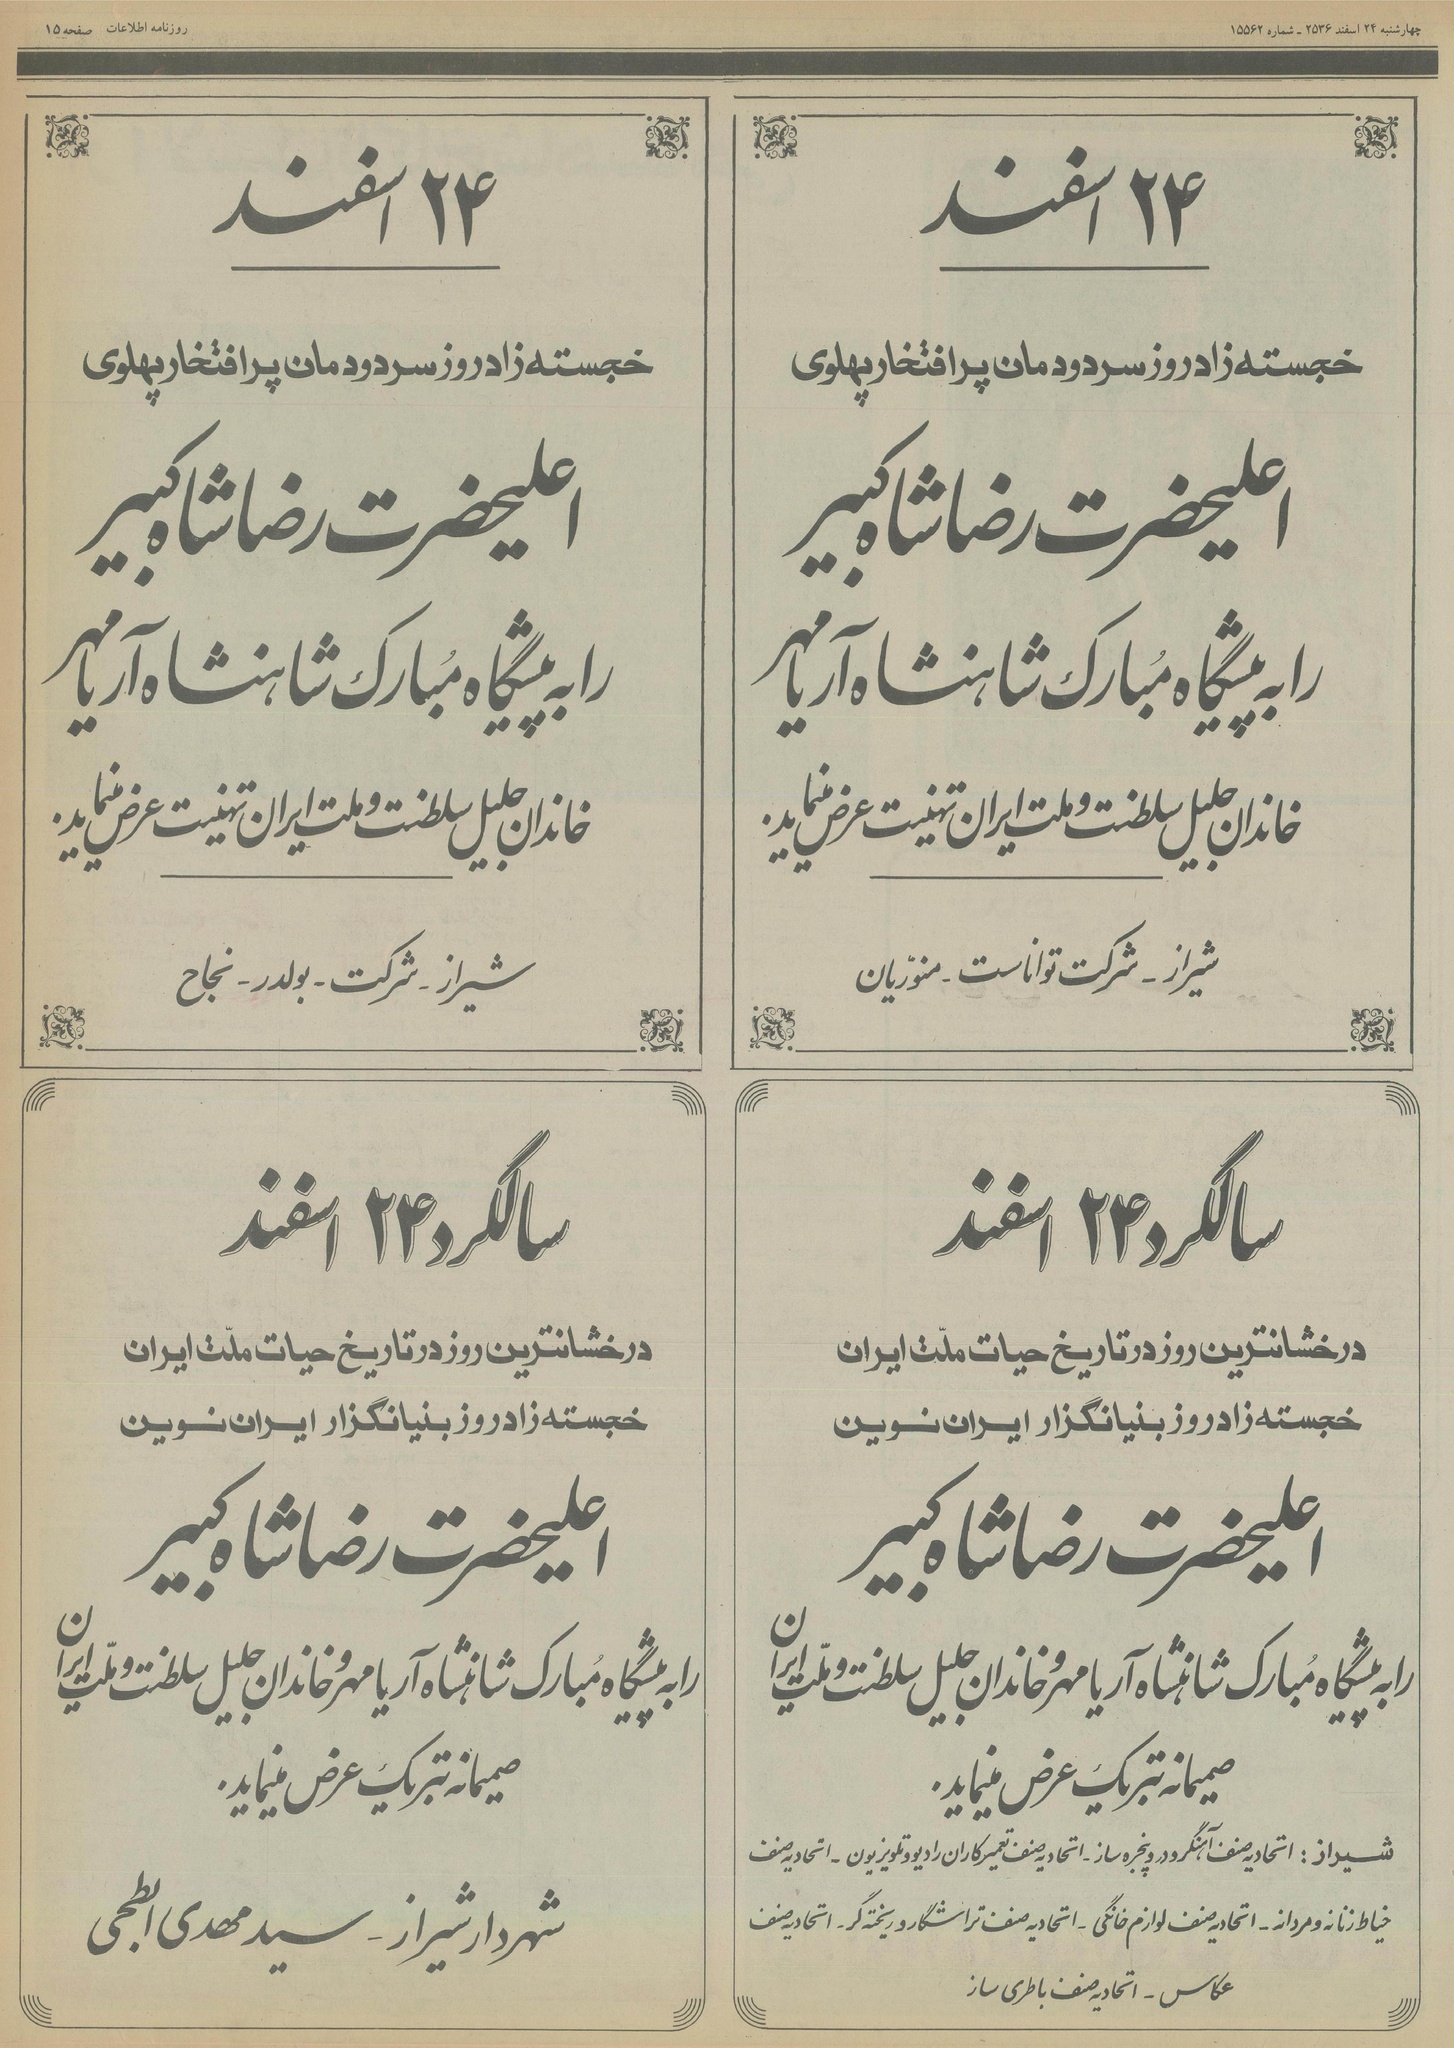 چهارشنبه ۲۴ اسفند ۲۵۳۶ ـ شماره ۱۵۵۶۲
روزنامه اطلاعات صفحه ۱۵
۲۴ اسفند
خجسته زادروز سردودمان پرافتخار پهلوی
اعلیحضرت رضا شاه کبیر
را به پیشگاه مُبارک شاهنشاه آریامهر
خاندان جلیل سلطنت و ملت ایران تهنیت عرض مینماید.
شیراز ـ شرکت تواناست ـ منوّریان
۲۴ اسفند
خجسته زادروز سردودمان پرافتخار پهلوی
اعلیحضرت رضا شاه کبیر
را به پیشگاه مُبارک شاهنشاه آریامهر
خاندان جلیل سلطنت و ملت ایران تهنیت عرض مینماید.
شیراز ـ شرکت ـ بولدر ـ نجاح
سالگرد ۲۴ اسفند
درخشانترین روز در تاریخ حیات ملّت ایران
خجسته زادروز بنیانگزار ایران نوین
اعلیحضرت رضا شاه کبیر
را به پیشگاه مُبارک شاهنشاه آریامهر و خاندان جلیل سلطنت و ملّت ایران
صمیمانه تبریک عرض مینماید.
شیراز : اتحادیه صنف آهنگر و در و پنجره ساز ـ اتحادیه صنف تعمیرکاران رادیو و تلویزیون ـ اتحادیه صنف
خیاط زنانه و مردانه ـ اتحادیه صنف لوازم خانگی ـ اتحادیه صنف تراشکار و ریخته گر ـ اتحادیه صنف
عکاس ـ اتحادیه صنف باطری ساز
سالگرد ۲۴ اسفند
درخشانترین روز در تاریخ حیات ملّت ایران
خجسته زادروز بنیانگزار ایران نوین
اعلیحضرت رضا شاه کبیر
را به پیشگاه مُبارک شاهنشاه آریامهر و خاندان جلیل سلطنت و ملّت ایران
صمیمانه تبریک عرض مینماید.
شهردار شیراز ـ سید مهدی ابطحی